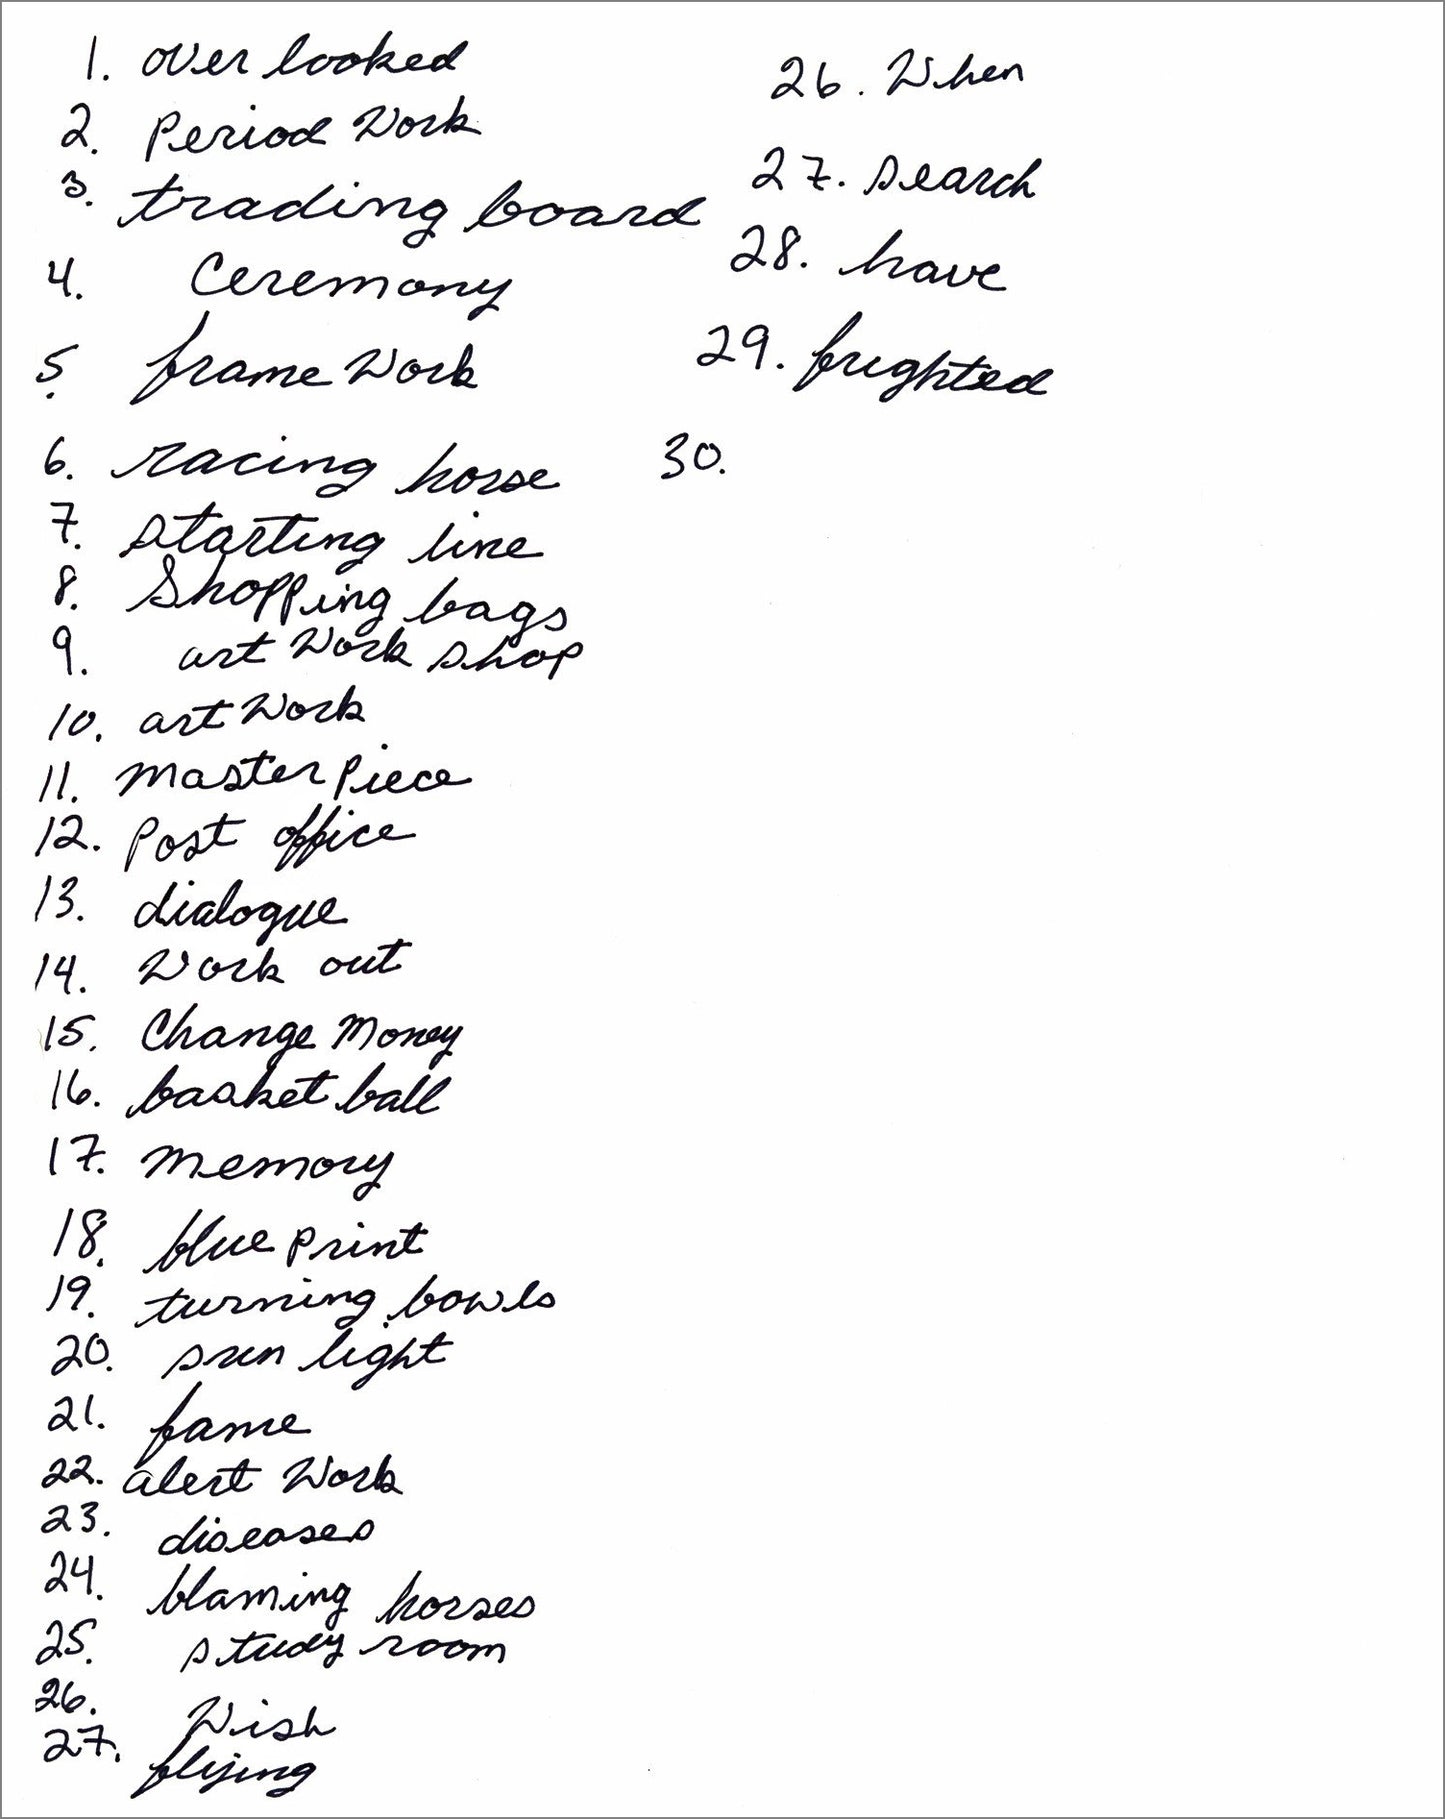 1. over looked
2. Period Work
3. trading board
4. Ceremony
5. frame Work
6. racing horse
7. starting line
8. Shopping bags
9. art Work shop
10. art Work
11. master Piece
12. Post office
13. dialogue
14. Work out
15. Change Money
16. basket ball
17. memory
18. blue print
19. turning bowls
20. sun light
21. fame
22. alert Work
23. diseases
24. blaming horses
25. study room
26. Wish
27. flying
26. When
27. search
28. have
29. frighted
30.